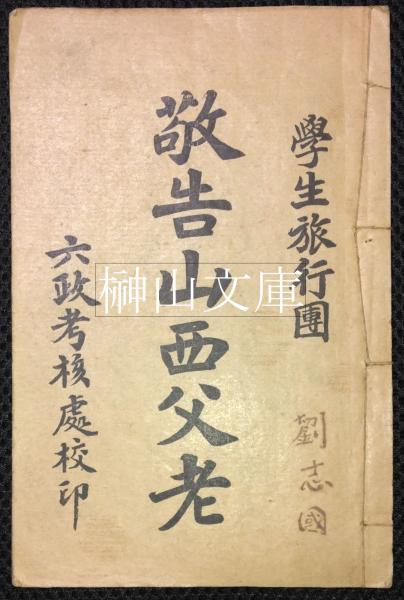 學生旅行團
劉志國
敬告山西父老
六政考核處校印
榊山文庫